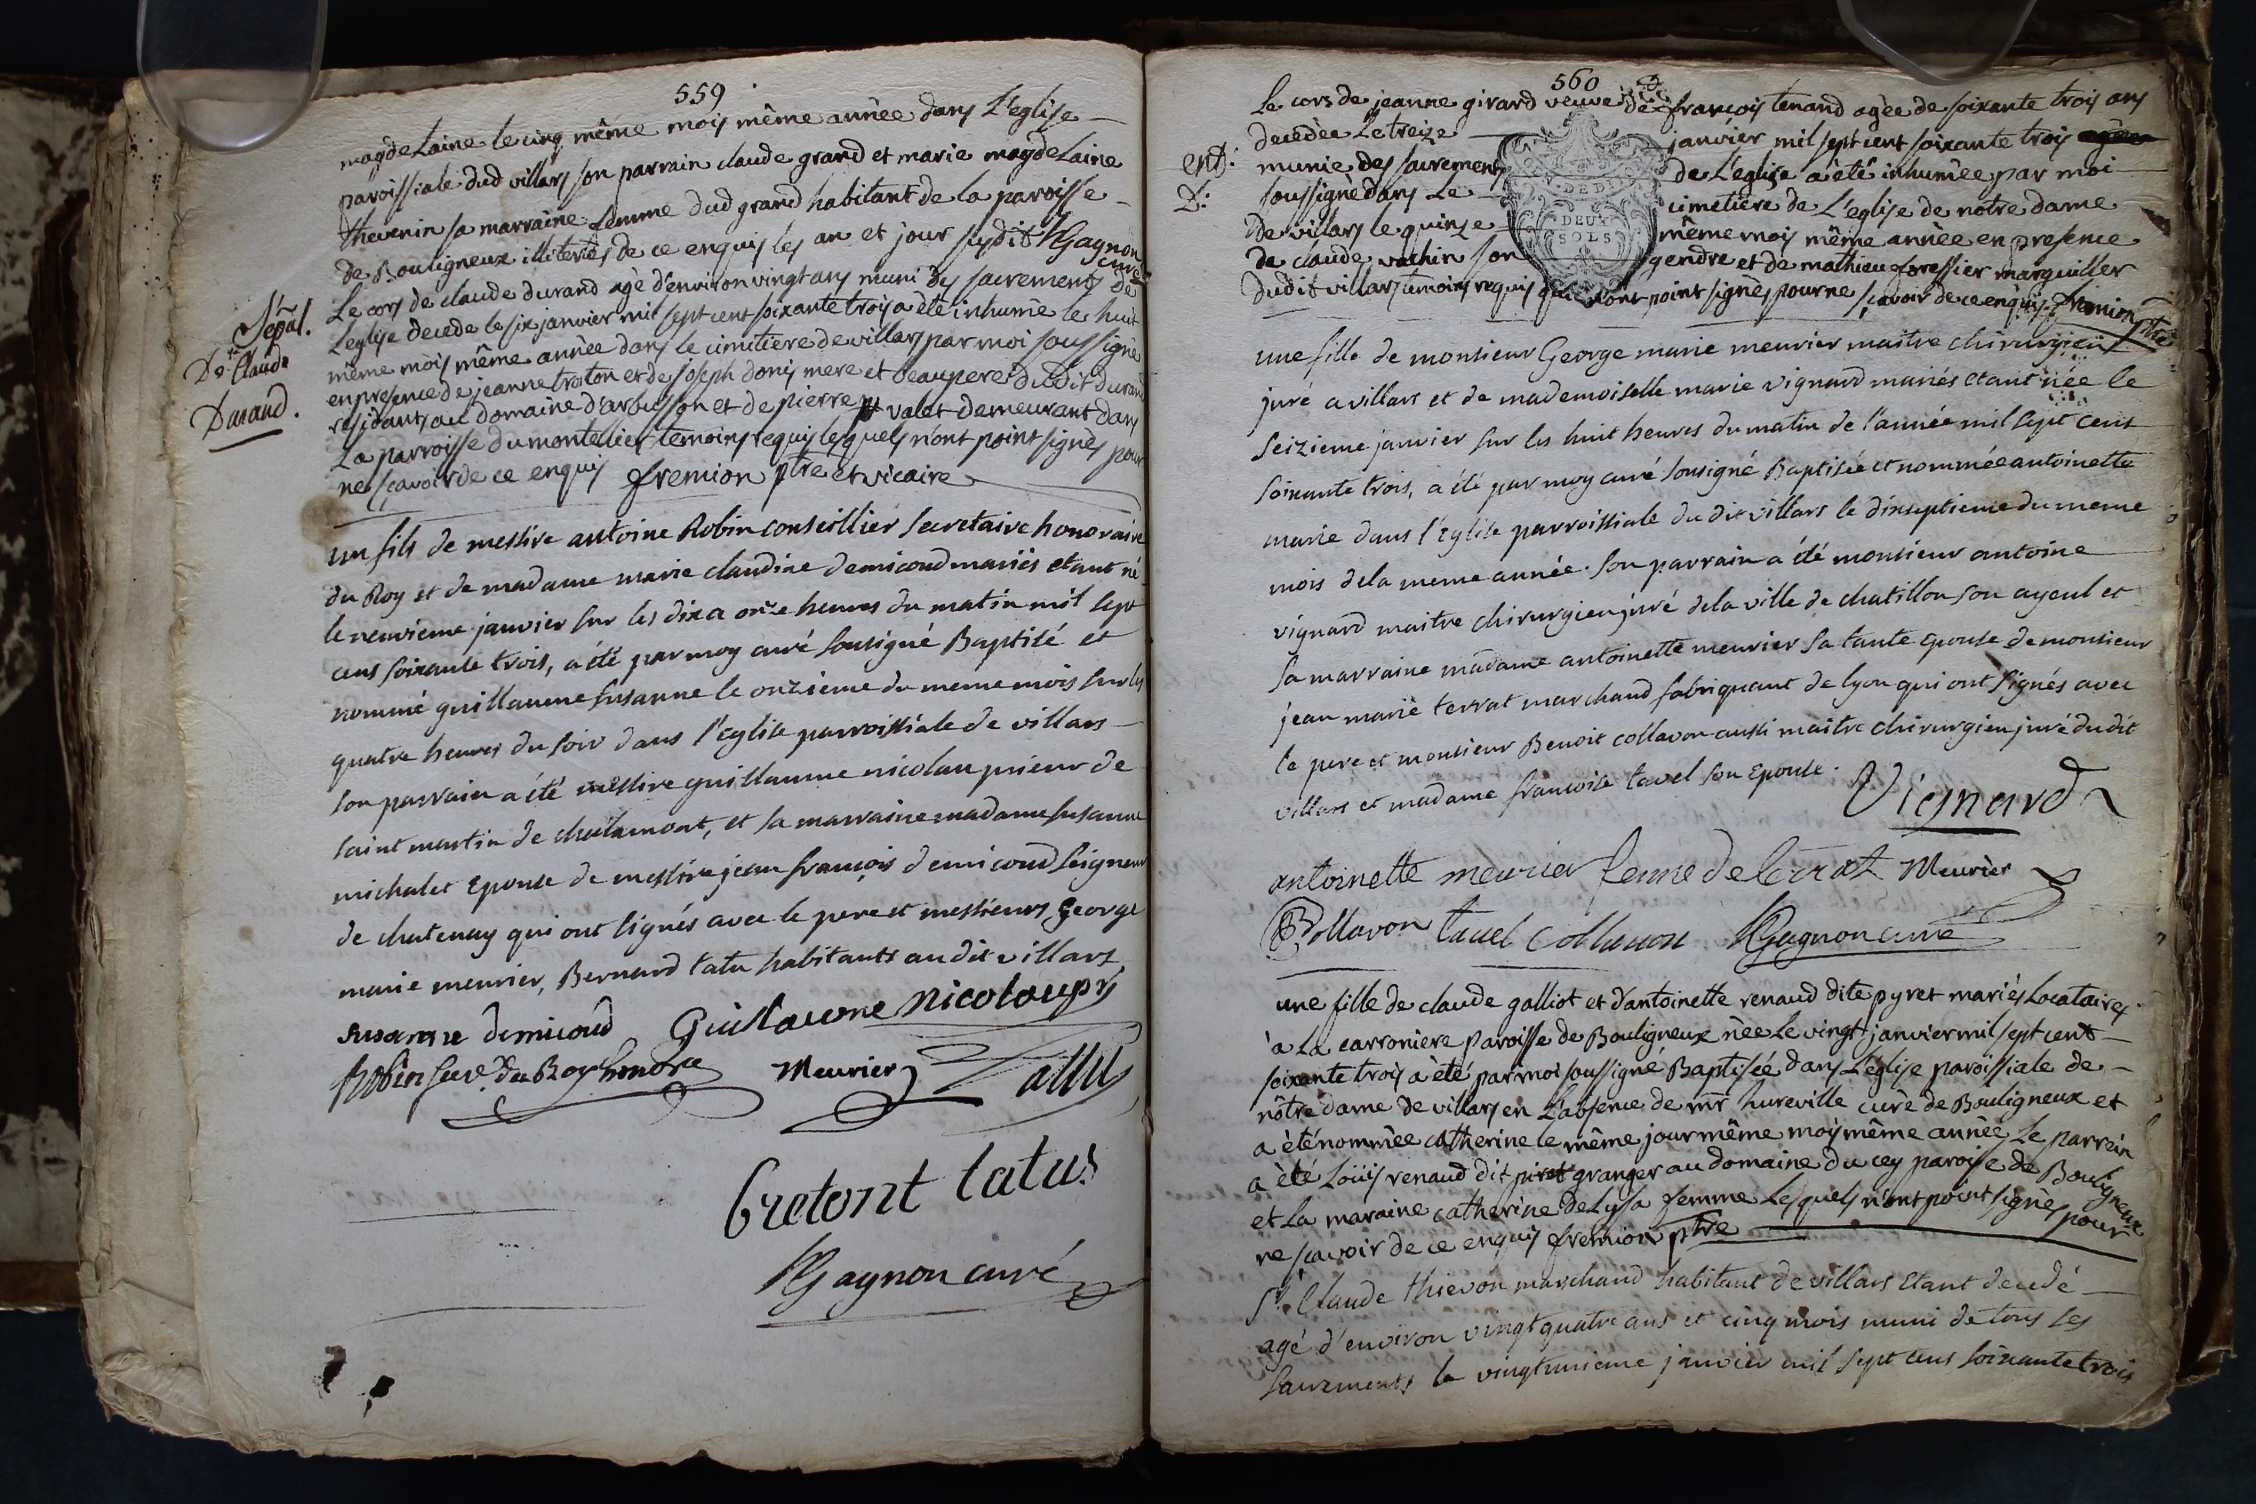 559
magdeLaine le cinq même mois même année dans L'eglise
paroissiale dud villars son parrain claude grand et marie magdeLaine
thevenin sa marraine femme dud grand habitant de la paroisse
de Bouligneux illiterés de ce enquis les an et jour susdit Gagnon
curé
Sépal.
De Claude
Durand.
Le cors de claude durand agé d'environ vingt ans muni des sacrements de
L'eglise decede le six janvier mil sept cent soixante trois a été inhumé le huit
même mois même année dans le cimitiere de villars par moi soussigné
en presence de jeanne troton et de joseph donis mere et beaupere dudit durand
residants au domaine d'arbusson et de pierre valet demeurant dans
La parroisse du montelier temoins requis lesquels n'ont point signés pour
ne scavoir de ce enquis fremion ptre et vicaire
un fils de messire antoine Robin conseillier secretaire honoraire
du Roy et de madame marie claudine demicoud mariés etant né
le neuvieme janvier sur les dix a onze heures du matin mil sept
cens soixante trois, a été par moy curé sousigné Baptisé et
nommé guillaume susanne le onzieme du meme mois sur les
quatre heures du soir dans l'eglise parroissiale de villars
son parrain a été messire guillaume nicolau prieur de
saint martin de chalamont, et sa marraine madame susanne
michalet epouse de messire jean françois demicoud seigneur
de chatenay qui ont signés avec le pere et messieurs George
marie meurier, Bernard tatu habitants au dit villars
susanne demicoud Guillaume nicolau pr
Robin secre. du Roy honore Meurier Tattu
Bretont tatus
Gagnon curé
560
Le cors de jeanne girard veuve de françois tenand agée de soixante trois ans
decedée Le treize janvier mil sept cent soixante trois
ent:
munie des sacrements de L'eglise a été inhumée par moi
soussigné dans Le cimetiere de L'eglise de notre dame
de villars le quinze même mois même année en presence
de claude vachin son gendre et de mathieu foressier marguiller
dudit villars temoins requis qui n'ont point signés pour ne sçavoir de ce enquis fremion
ptre
DEUX
SOLS
une fille de monsieur George marie meurier maitre chirurgien
juré a villars et de mademoiselle marie vignard mariés etant née le
seizieme janvier sur les huit heures du matin de l'année mil sept cens
soixante trois, a été par moy curé sousigné Baptisée et nommée antoinette
marie dans l'Eglise parroissiale du dit villars le dixseptieme du meme
mois de la meme année. son parrain a été monsieur antoine
vignard maitre chirurgien juré de la ville de chatillon son ayeul et
sa marraine madame antoinette meurier sa tante epouse de monsieur
jean marie terrat marchand fabriquant de lyon qui ont signés avec
le pere et monsieur Benoit collavon aussi maitre chirurgien juré dudit
villars et madame francoise tavel son epouse. Vignard
antoinette meurier femme de terrat Meurier
B Collavon tavel Collavon Gagnon curé
une fille de claude galliot et d'antoinette renaud dite pyret mariés Locataires
à La carroniere paroisse de Bouligneux née Le vingt janvier mil sept cent
soixante trois a été par moi soussigné Baptisée dans L'eglise paroissiale de
nôtre dame de villars en L'absence de mr hureville curé de Bouligneux et
a été nommée catherine le même jour même mois même année Le parrein
a été Loüis renaud dit piret granger au domaine du cey paroisse de Bouligneux
et La maraine catherine deLys sa femme Lesquels n'ont point signés pour
ne scavoir de ce enquis fremion ptre
Sr Claude thievon marchand habitant de villars etant decedé
agé d'environ vingt quatre ans et cinq mois muni de tous les
sacrements le vingtunieme janvier mil sept cens soixante trois